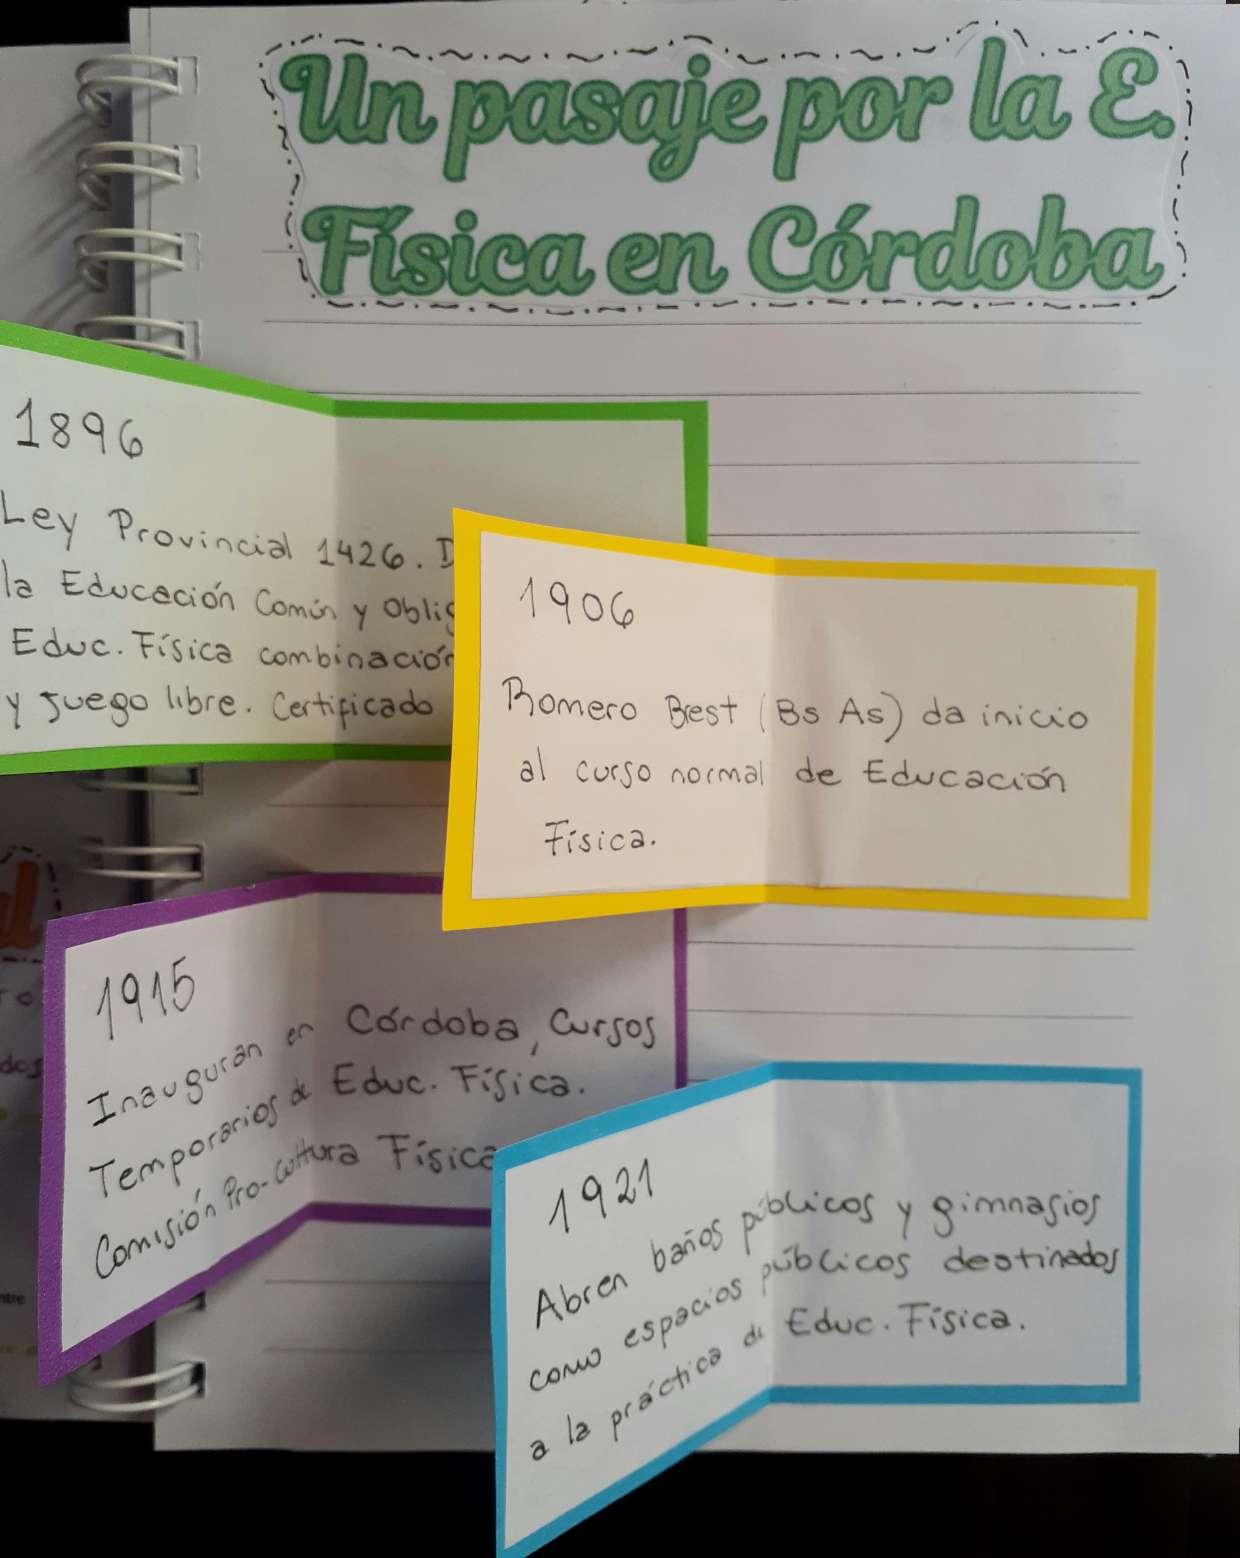 Un pasaje por la E.
Física en Córdoba
1896
Ley Provincial 1426.
la Educación Común y
Educ. Física combinación
y juego libre. Certificado
1906
Romero Brest (Bs As) da inicio
al curso normal de Educación
Física.
1915
Inauguran en Córdoba, Cursos
Temporarios de Educ. Física.
Comisión Pro-Cultura Física
1921
Abren baños públicos y gimnasios
como espacios públicos destinados
a la práctica de Educ. Física.